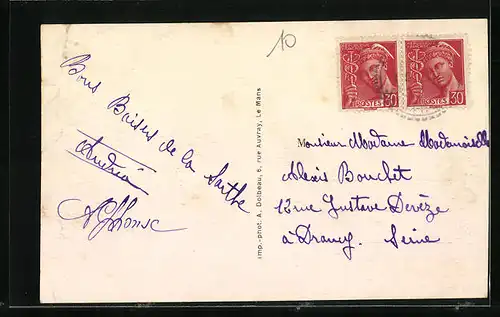 10
Bons Baisers de la Sarthe
Andréa
Alphonse
Imp.-phot. A. Dolbeau, 6, rue Auvray, Le Mans
POSTES 30
POSTES 30
Monsieur Madame Mademoiselle
Alexis Bouchet
12 rue Gustave Devèze
à Drancy. Seine